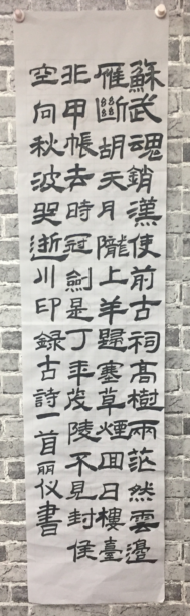 蘇武魂銷漢使前古祠高樹兩茫然雲邊
雁斷胡天月隴上羊歸塞草煙回日樓臺
非甲帳去時冠劍是丁年茂陵不見封侯
空向秋波哭逝川印錄古詩一首丽仪書